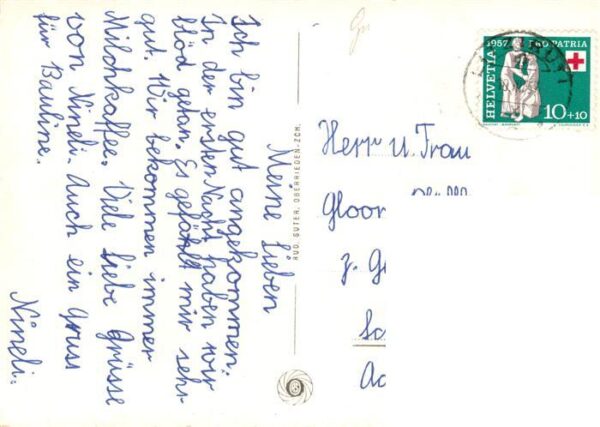 Meine Lieben
Ich bin gut angekommen.
In der ersten Nacht haben wir
blöd getan. Es gefählt mir sehr
gut. Wir bekommen immer
Milchkaffee. Viele liebe Grüsse
von Nineli. Auch ein Gruss
für Bauline.
Nineli.
RUD. SUTER, OBERRIEDEN-ZCH.
HELVETIA
1957 PRO PATRIA
10+10
Herr u. Frau
Gloor